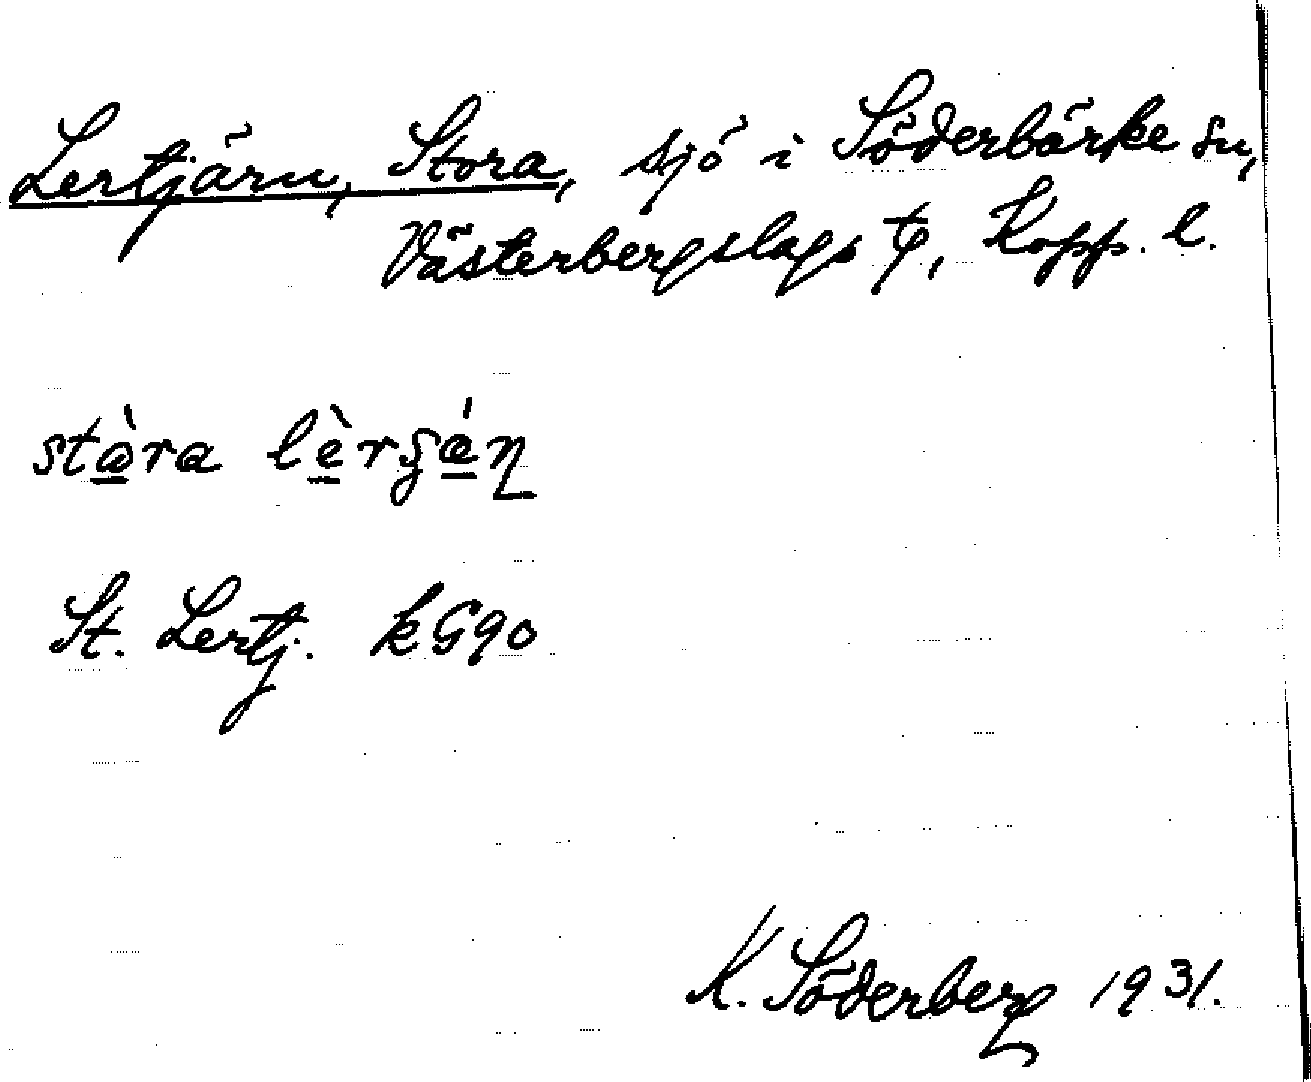 Lertjärn, Stora, sjö i Söderbärke sn,
Västerbergslags tg, Kopp. l.
stòra lèrʂán
St. Lertj. kG90
K. Söderberg 1931.